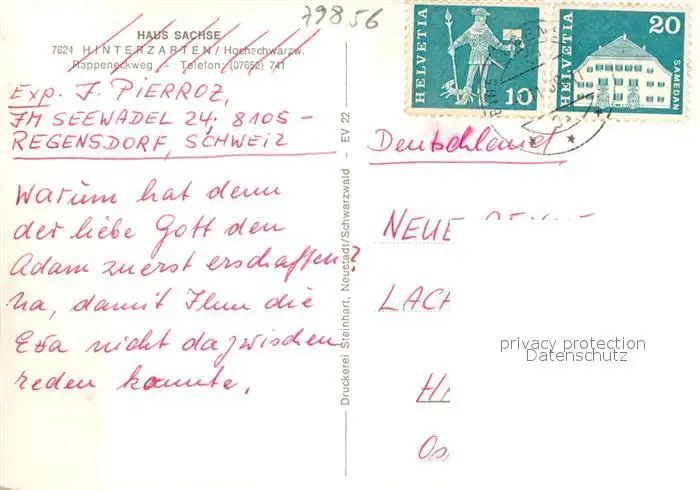 79856
HAUS SACHSE
7824 HINTERZARTEN / Hochschwarzw.
Rappeneckweg Telefon: (07652) 741
Exp. J. PIERROZ,
IM SEEWADEL 24, 8105 -
REGENSDORF, SCHWEIZ
Warum hat denn
der liebe Gott den
Adam zuerst erschaffen?
na, damit Ihm die
Eva nicht dazwischen
reden konnte.
Druckerei Steinhart, Neustadt/Schwarzwald - EV 22
HELVETIA
10
HELVETIA
20
SAMEDAN
Deutschland,
NEUE
LACH
privacy protection
Datenschutz